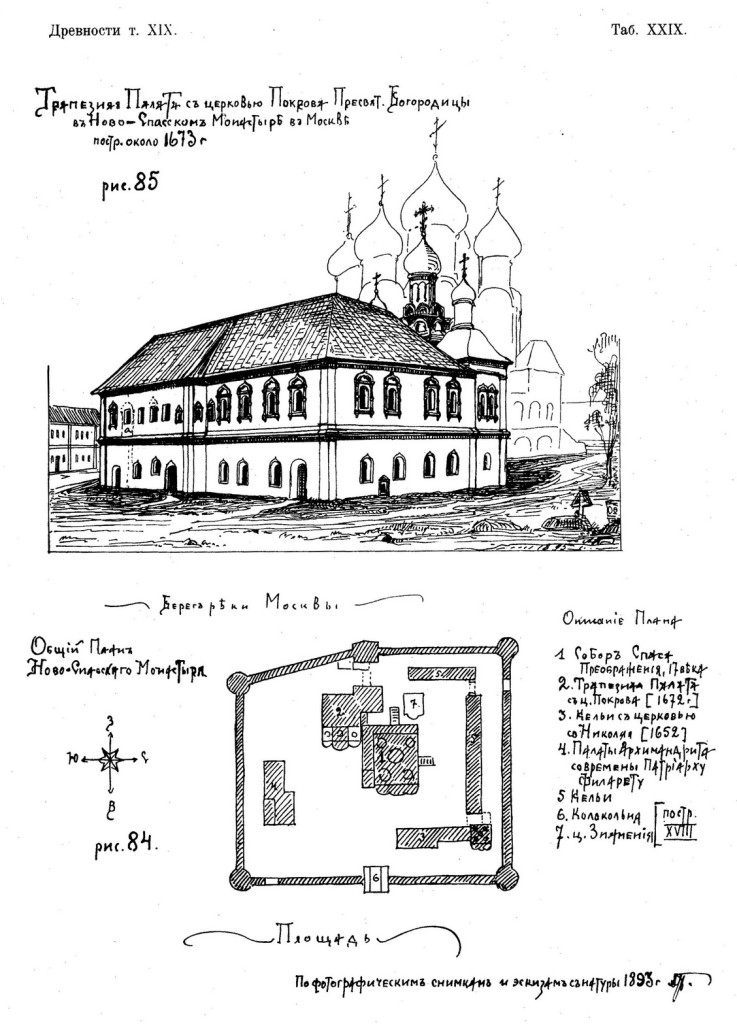 Древности т. XIX.
Таб. XXIX.
Трапезная Палата съ церковью Покрова Пресвят. Богородицы
въ Ново-Спасскомъ Монастырѣ въ Москвѣ
постр. около 1673 г
рис. 85
Берегъ рѣки Москвы
Общій Планъ
Ново-Спасскаго Монастыря
З
Ю
С
В
рис. 84.
1
2
3
4
5
6
7.
Площадь
Описаніе Плана
1 Соборъ Спаса
Преображенія, 17 вѣка
2. Трапезная Палата
съ ц. Покрова [1672 г]
3. Кельи съ церковью
св Николая [1652]
4. Палаты Архимандрита
современы Патріарху
Филарету
5 Кельи
6. Колокольня
7. ц. Знаменія
постр.
XVIII
По фотографическимъ снимкамъ и эскизамъ съ натуры 1893 г